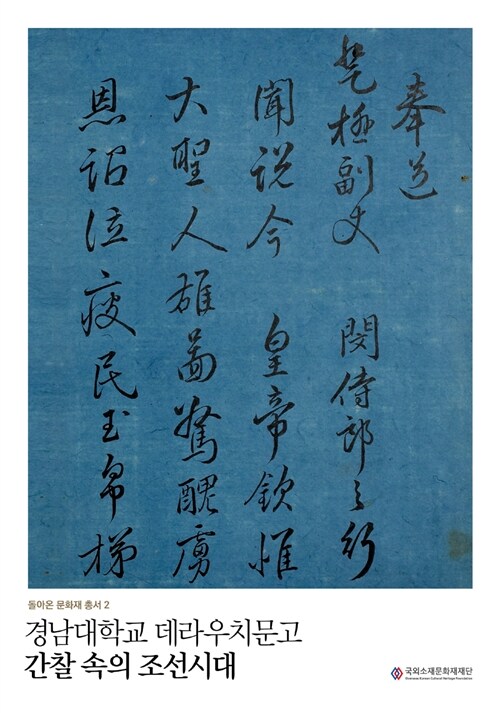 奉送
登極副 閔侍郎之行
聞説今 皇帝欽惟
大聖人雄啚驚醜虜
恩詔泣疲民玉帛梯
돌아온 문화재 총서 2
경남대학교 데라우치문고
간찰 속의 조선시대
국외소재문화재재단
Overseas Korean Cultural Heritage Foundation